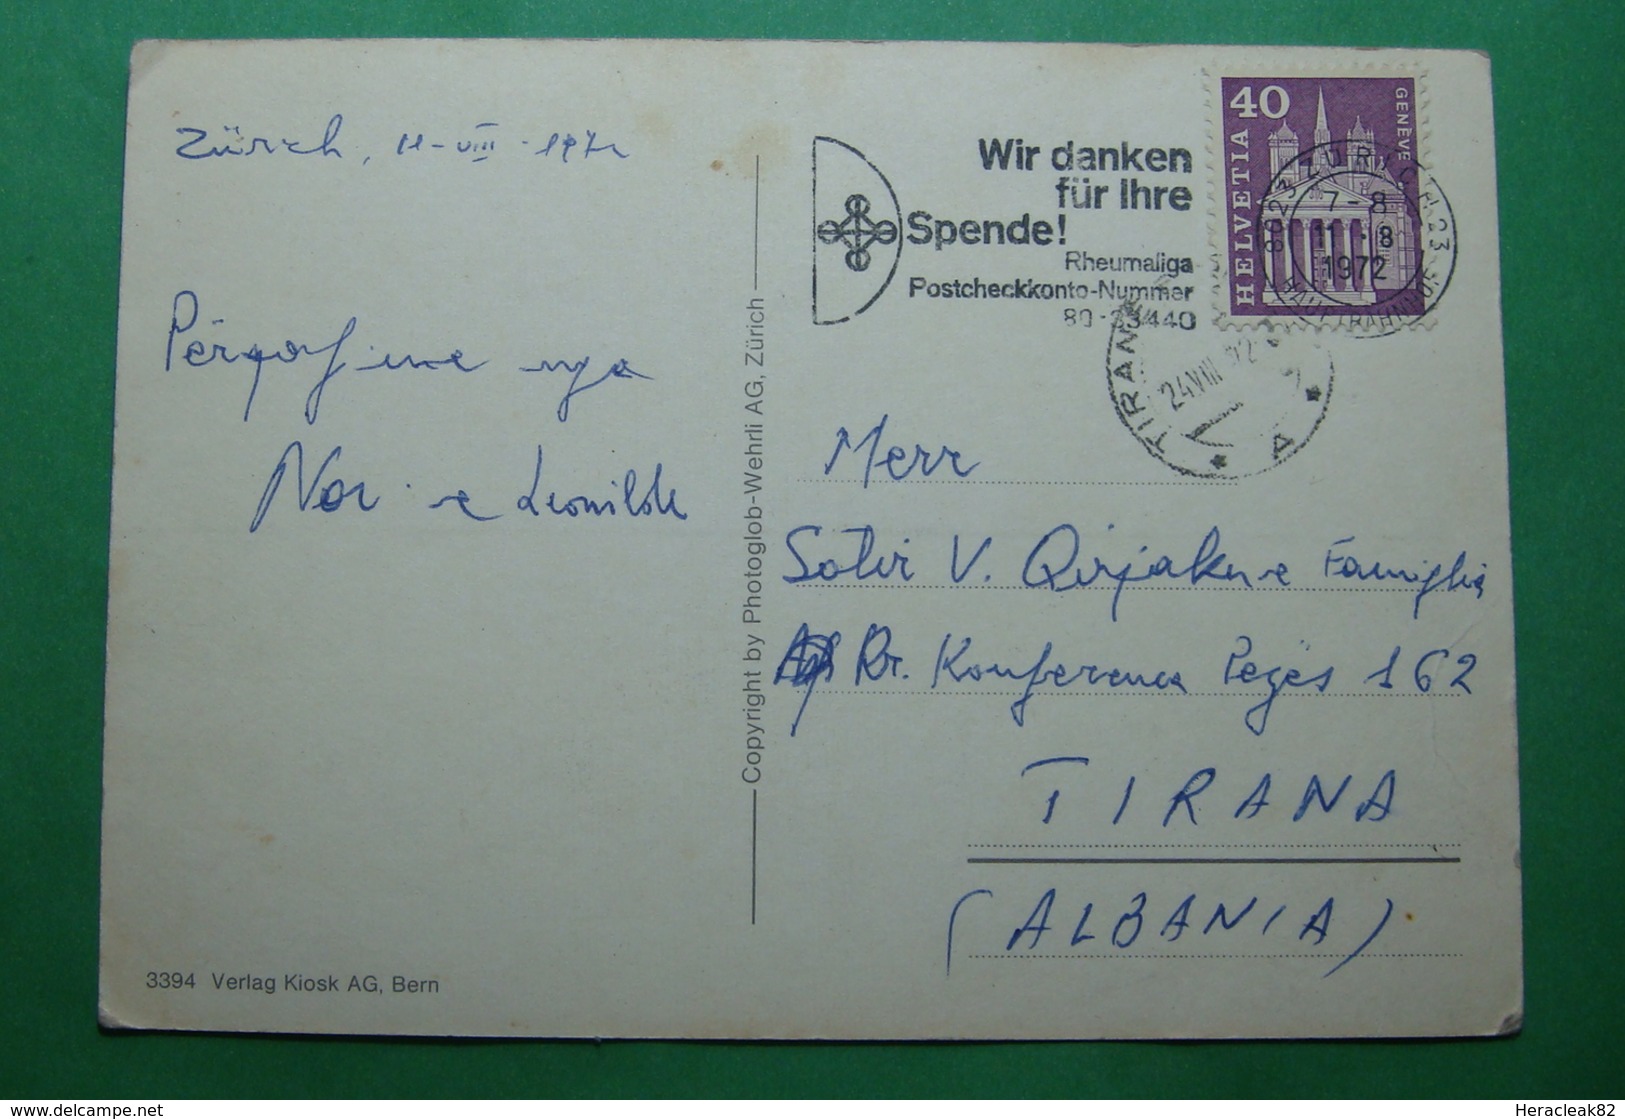 Zürich, 11-VIII-1972
Përqafime nga
Nor e Leonilde
Copyright by Photoglob-Wehrli AG, Zürich
3394 Verlag Kiosk AG, Bern
Wir danken
für Ihre
Spende!
Rheumaliga
Postcheckkonto-Nummer
80-23440
40
HELVETIA
GENÈVE
8023 ZÜRICH 23
7-8
11.-8
1972
HAUPTBAHNHOF
TIRANE
24 VIII 72
A
Merr
Sotir V. Qirjaku e Famiglia
Rr. Konferenca Pezës 162
TIRANA
(ALBANIA)
http://www.delcampe.net
Heracleak82